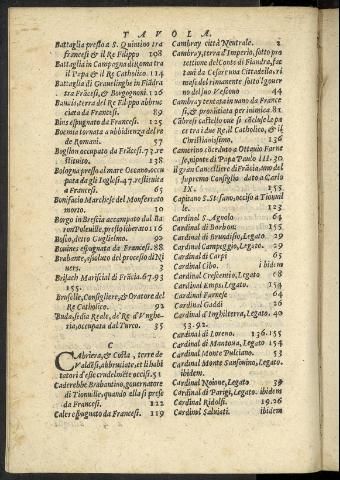 TAVOLA.
Battaglia presso a S. Quintino tra
francesi & il Re Filippo 108
Battaglia in Campagna di Roma tra
il Papa & il Re Catholico. 114
Battaglia di Grauelinghe in Fiādra
tra Frācesi, & Borgognoni. 126
Bauais, terra del Re Filippo abbruc
ciata da Francesi. 89
Bins espugnato da Francesi. 125
Boemia tornata a obbidienza del re
de Romani. 57
Boglion occupato da Frācesi. 73. re
stituiso. 138
Bologna presso al mare Oceano, occu
pata da gli Inglesi. 47. restituita
a Francesi. 65
Bonifacio Marchese del Monferrato
morto. 10
Borgo in Brescia occampato dal Ba
ron Poleuille. presto liberato 116
Bosco, detto Guglielmo. 90
Bouines espugnata da Francesi. 88
Brabante, assoluta del processo di Ni
uers. 3
Brisach Marescial di Frācia. 67.93
155.
Bruselle, Consigliere, & Oratore del
Re Catholico. 92
Buda, sedia Reale, de' Re d'Vnghe-
ria, occupata dal Turco. 35
C
CAbriera, & Costa, terre de
Valdesi, abbruciate, et li habi
tatori d'esse crudelmēte occisi. 51
Caderebbe Brabantino, gouernatore
di Tionuille, quando ella si prese
da Francesi. 122
Cales espugnato da Francesi. 119
Cambray città Neutrale. 2
Cambray, terra d'Imperio, sotto pro
tettione del Conte di Fiandra, fac
taui da Cesare una Cittadella, ri
masa del rimanente sotto l gouer
no del suo Vescouo 44
Cambray tentata in uano da France
si, & prohibita per inimica. 81
Cābresi castello oue si cōcluse la pa
ce tra i due Re, il Catholico, & il
Christianissimo. 136
Camerino: ceduto a Ottauio Farne
se, nipote di Papa Paulo III. 30
il gran Cancelliere di Frācia, uno del
supremo Consiglio dato a Carlo
IX. 155.
Capitano S. Stefano, occiso a Tionuil
le. 123
Cardinal S. Agnolo 64
Cardinal di Borbon. 155.
Cardinal di Brundisio, Legato. 29
Cardinal Campeggio, Legato. 29
Cardinal di Carpi 65
Cardinal Cibo. ibidem
Cardinal Crescentio, Legato 68
Cardinal Emps, Legato. 154
Cardinal Farnese 64
Cardinal Gaddi 26
Cardinal d'Inghilterra, Legato. 40
53.92.
Cardinal di Loreno. 136.155
Cardinal di Mantoua, Legato 154
Cardinal Monte Pulciano. 53
Cardinal Monte Sansonino, Legato.
ibidem.
Cardinal Noione, Legato 39
Cardinal di Parigi, Legato. ibidem
Cardinal Ridolfi. 19.26
Cardinal Saluiati. ibidem